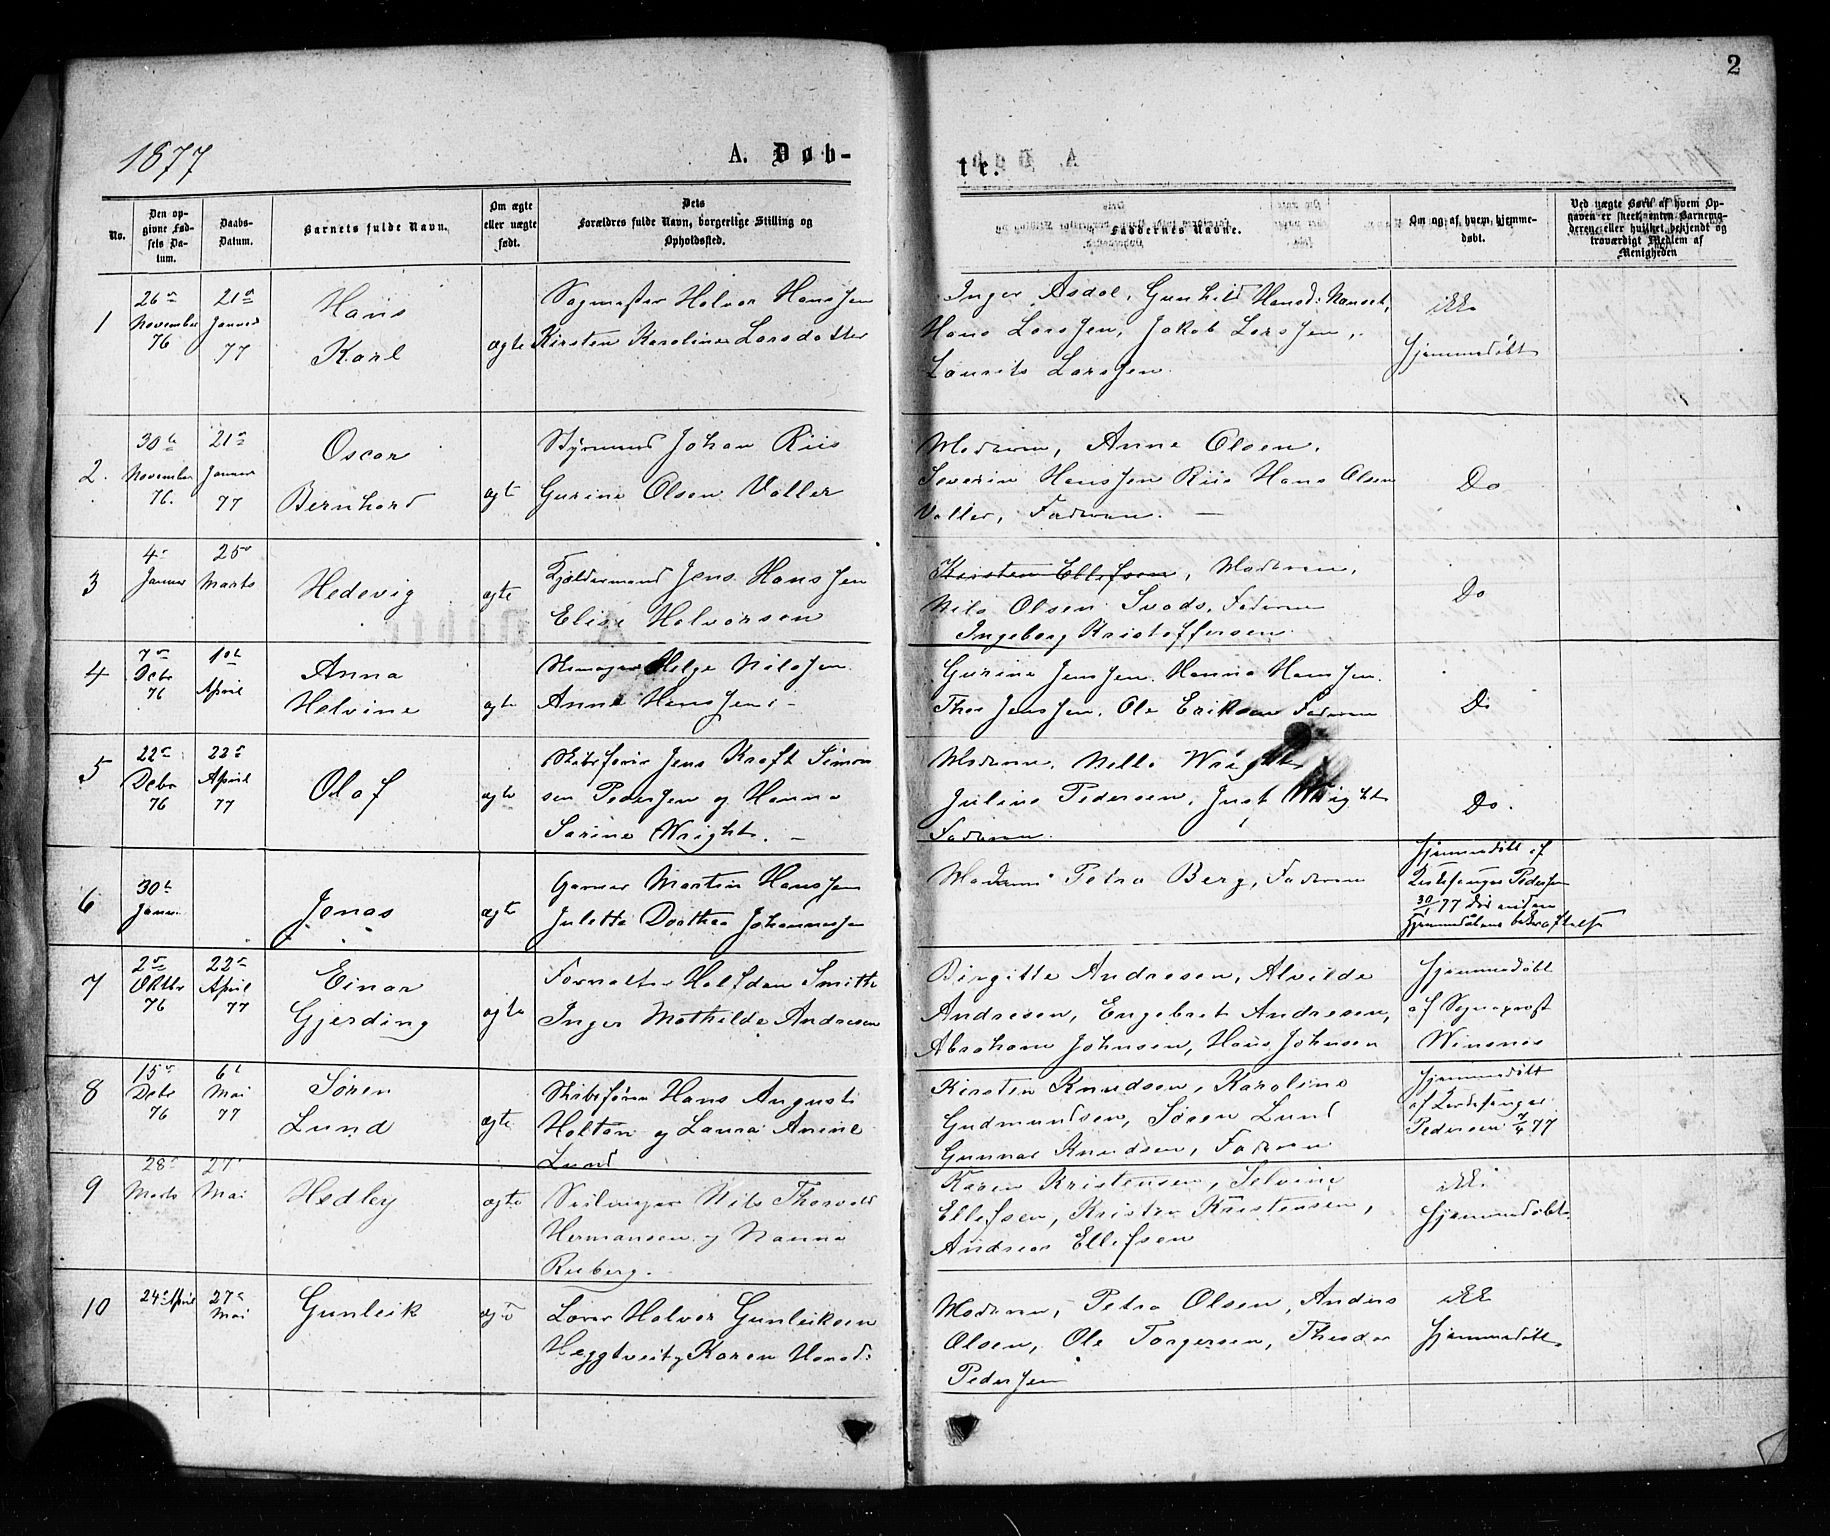 2
1877
A. Døb-
te.
No.
Den op-
givne Fød-
sels Da-
tum.
Daabs-
Datum.
Barnets fulde Navn.
Om ægte
eller uægte
født.
Dets
Forældres fulde Navn, borgerlige Stilling og
Opholdssted.
Faddernes Navne.
Om og af hvem hjemme-
døbt.
Ved uægte Børn af hvem Op-
gaven er skeet, enten Barnemo-
deren, eller hvilket bekjendt og
troværdigt Medlem af
Menigheden
1
26
November
76
21
Januar
77
Hans
Karl
ægte
Sagmester Halvor Hanssen
Kirsten Karoline Larsdatter
Inger Asdal, Gunhild Hansd:
Hans Larssen, Jakob Larssen,
Laurits Larssen
ikke
hjemmedøbt
2.
30te
November
76.
21
Januar
77
Oscar
Bernhard
ægte
Styrmand Johan Riis
Gurine Olsen Valler
Moderen, Anne Olsen,
Severin Hanssen Riis Hans Olsen
Valler, Faderen. —
Do
3
4
Januar
25
Marts
Hedevig
ægte
Jens Hanssen
Elise Halvorsen
Kirsten Ellefsen, Moderen,
Nils Olsen Svads, Faderen
Ingeborg Kristoffersen
Do
4
7
Decbr
76
1st
April
Anna
Helvine
ægte
Helge Nilssen
Anne Hanssen -
Gurine Jenssen, Hanna Hanssen
Thor Jenssen, Ole Eriksen Faderen
Do
5
22
Decbr
76
22
April
77
Olaf
ægte
Skibsfører Jens Kraft Simon
sen Pederssen og Hanna
Sarine Wright. —
Moderen, Nella Wright
Julius Pedersen, Just Wright
Faderen.
Do.
6
30te
Januar
Jonas
ægte
Garver Martin Hanssen
Julette Dorthea Johannessen
Moderen Petra Berg, Faderen
Hjemmedøbt af
Pederssen
30/1 77 døde inden
Hjemmedaabens bekræftelse
7
2
Oktbr
76
22
April
77
Einar
Gjerding
ægte
Forvalter Halfdan Smith
Inger Mathilde Andresen
Birgitte Andresen, Alvilde
Andresen, Engebret Andresen,
Abraham Johnsen, Hans Johnsen
Hjemmedøbt
af Sogneprest
Winsnes
8
15
Decbr
76
6t
Mai
77
Søren
Lund
ægte
Skibsfører Hans August
Holtan og Laura Anine
Lund
Kirsten Knudsen, Karoline
Gudmundsen, Søren Lund
Gunnar Knudsen, Faderen
Hjemmedøbt
af
Pedersen 77
9
28
Marts
27
Mai
Hedley
ægte
Nils Thorvald
Hermansen og Nanna
Ruberg.
Karen Kristensen, Selvine
Ellefsen, Kristen Kristensen,
Andreas Ellefsen
ikke
hjemmedøbt
10
24 April
27
Mai
Gunleik
ægte
Lærer Halvor Gunleiksen
Heggtveit og Karen Hansd:
Moderen, Petra Olsen, Anders
Olsen, Ole Torgersen, Theodor
Pederssen
ikke
hjemmedøbt